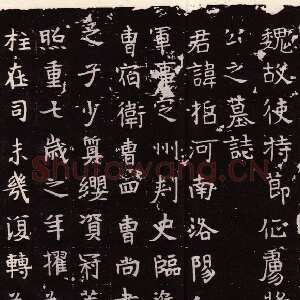 魏故使持節征虜將
公之墓誌
君諱河南洛陽
軍事定州刺史臨
曹宿衛曹曹尚
之子少纓資冠
照重七歲之年擢
柱在司未幾復轉
Shufawang.CN